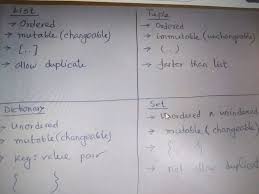 List
→ Ordered
→ mutable (changeable)
→ [..]
→ allow duplicate
Tuple
→ Ordered
→ immutable (unchangeable)
→ (..)
→ faster than list
Dictionary
→ Unordered
→ mutable (changeable)
→ key: value pair
{ }
Set
→ Unordered n unindexed
→ mutable (changeable)
→ { }
→ not allow duplicate